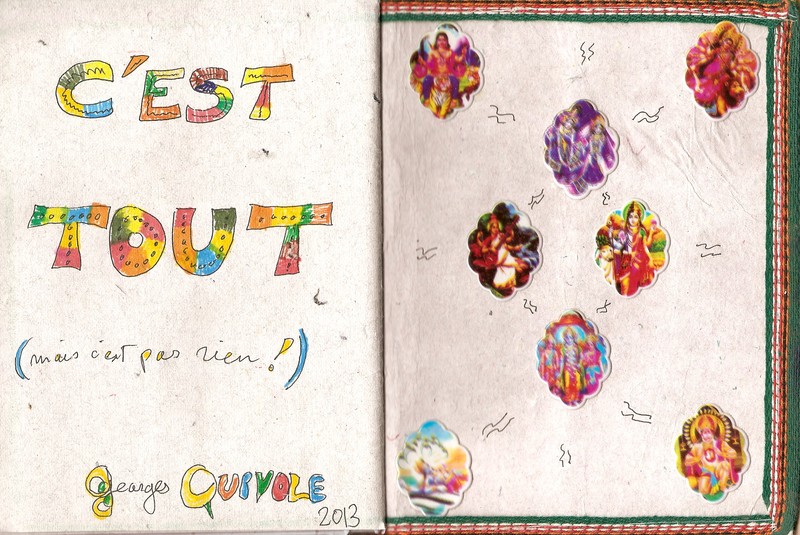 C'EST
TOUT
(mais c'est pas rien !)
georges QUIVOLE
2013